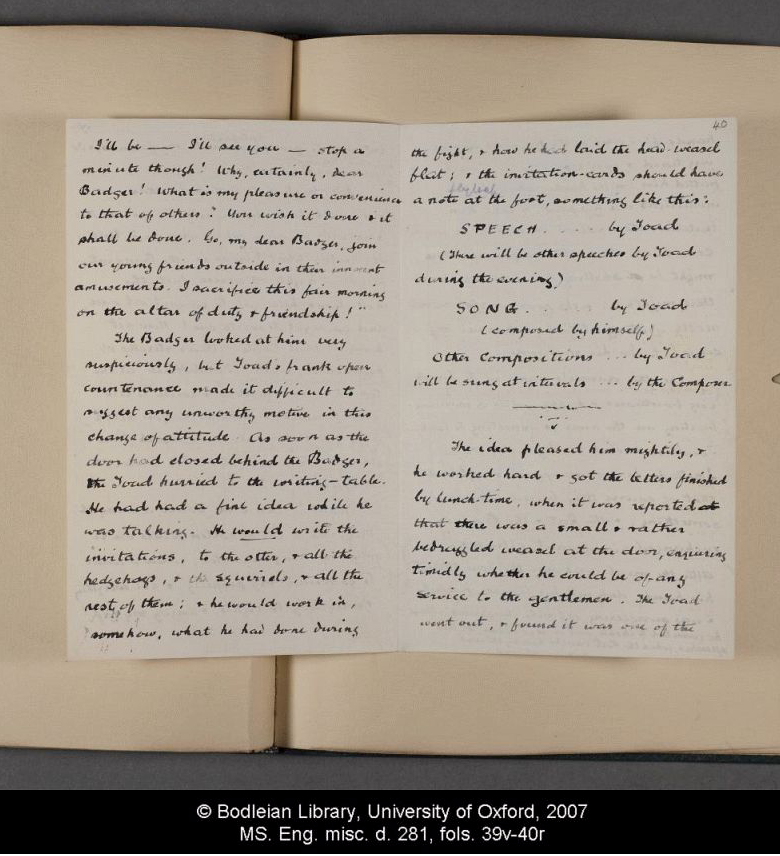 I'll be — I'll see you — stop a
minute though! Why, certainly, dear
Badger! What is my pleasure or convenience
to that of others? You wish it done & it
shall be done. Go, my dear Badger, join
our young friends outside in their innocent
amusements. I sacrifice this fair morning
on the altar of duty & friendship!"
The Badger looked at him very
suspiciously, but Toad's frank open
countenance made it difficult to
suggest any unworthy motive in this
change of attitude. As soon as the
door had closed behind the Badger,
the Toad hurried to the writing-table.
He had had a fine idea while he
was talking. He would write the
invitations, to the otter, & all the
hedgehogs, & the squirrels, & all the
rest of them; & he would work in,
somehow, what he had done during
40
the fight, & how he had laid the head-weasel
flat; & the invitation-cards should have
a note at the foot, something like this:
SPEECH. . . . . by Toad
(There will be other speeches by Toad
during the evening)
SONG. . . by Toad
(composed by himself)
Other Compositions . . . by Toad
will be sung at intervals . . . by the Composer
The idea pleased him mightily, &
he worked hard & got the letters finished
by lunch-time, when it was reported
that there was a small & rather
bedraggled weasel at the door, enquiring
timidly whether he could be of any
service to the gentlemen. The Toad
went out, & found it was one of the
© Bodleian Library, University of Oxford, 2007
MS. Eng. misc. d. 281, fols. 39v-40r